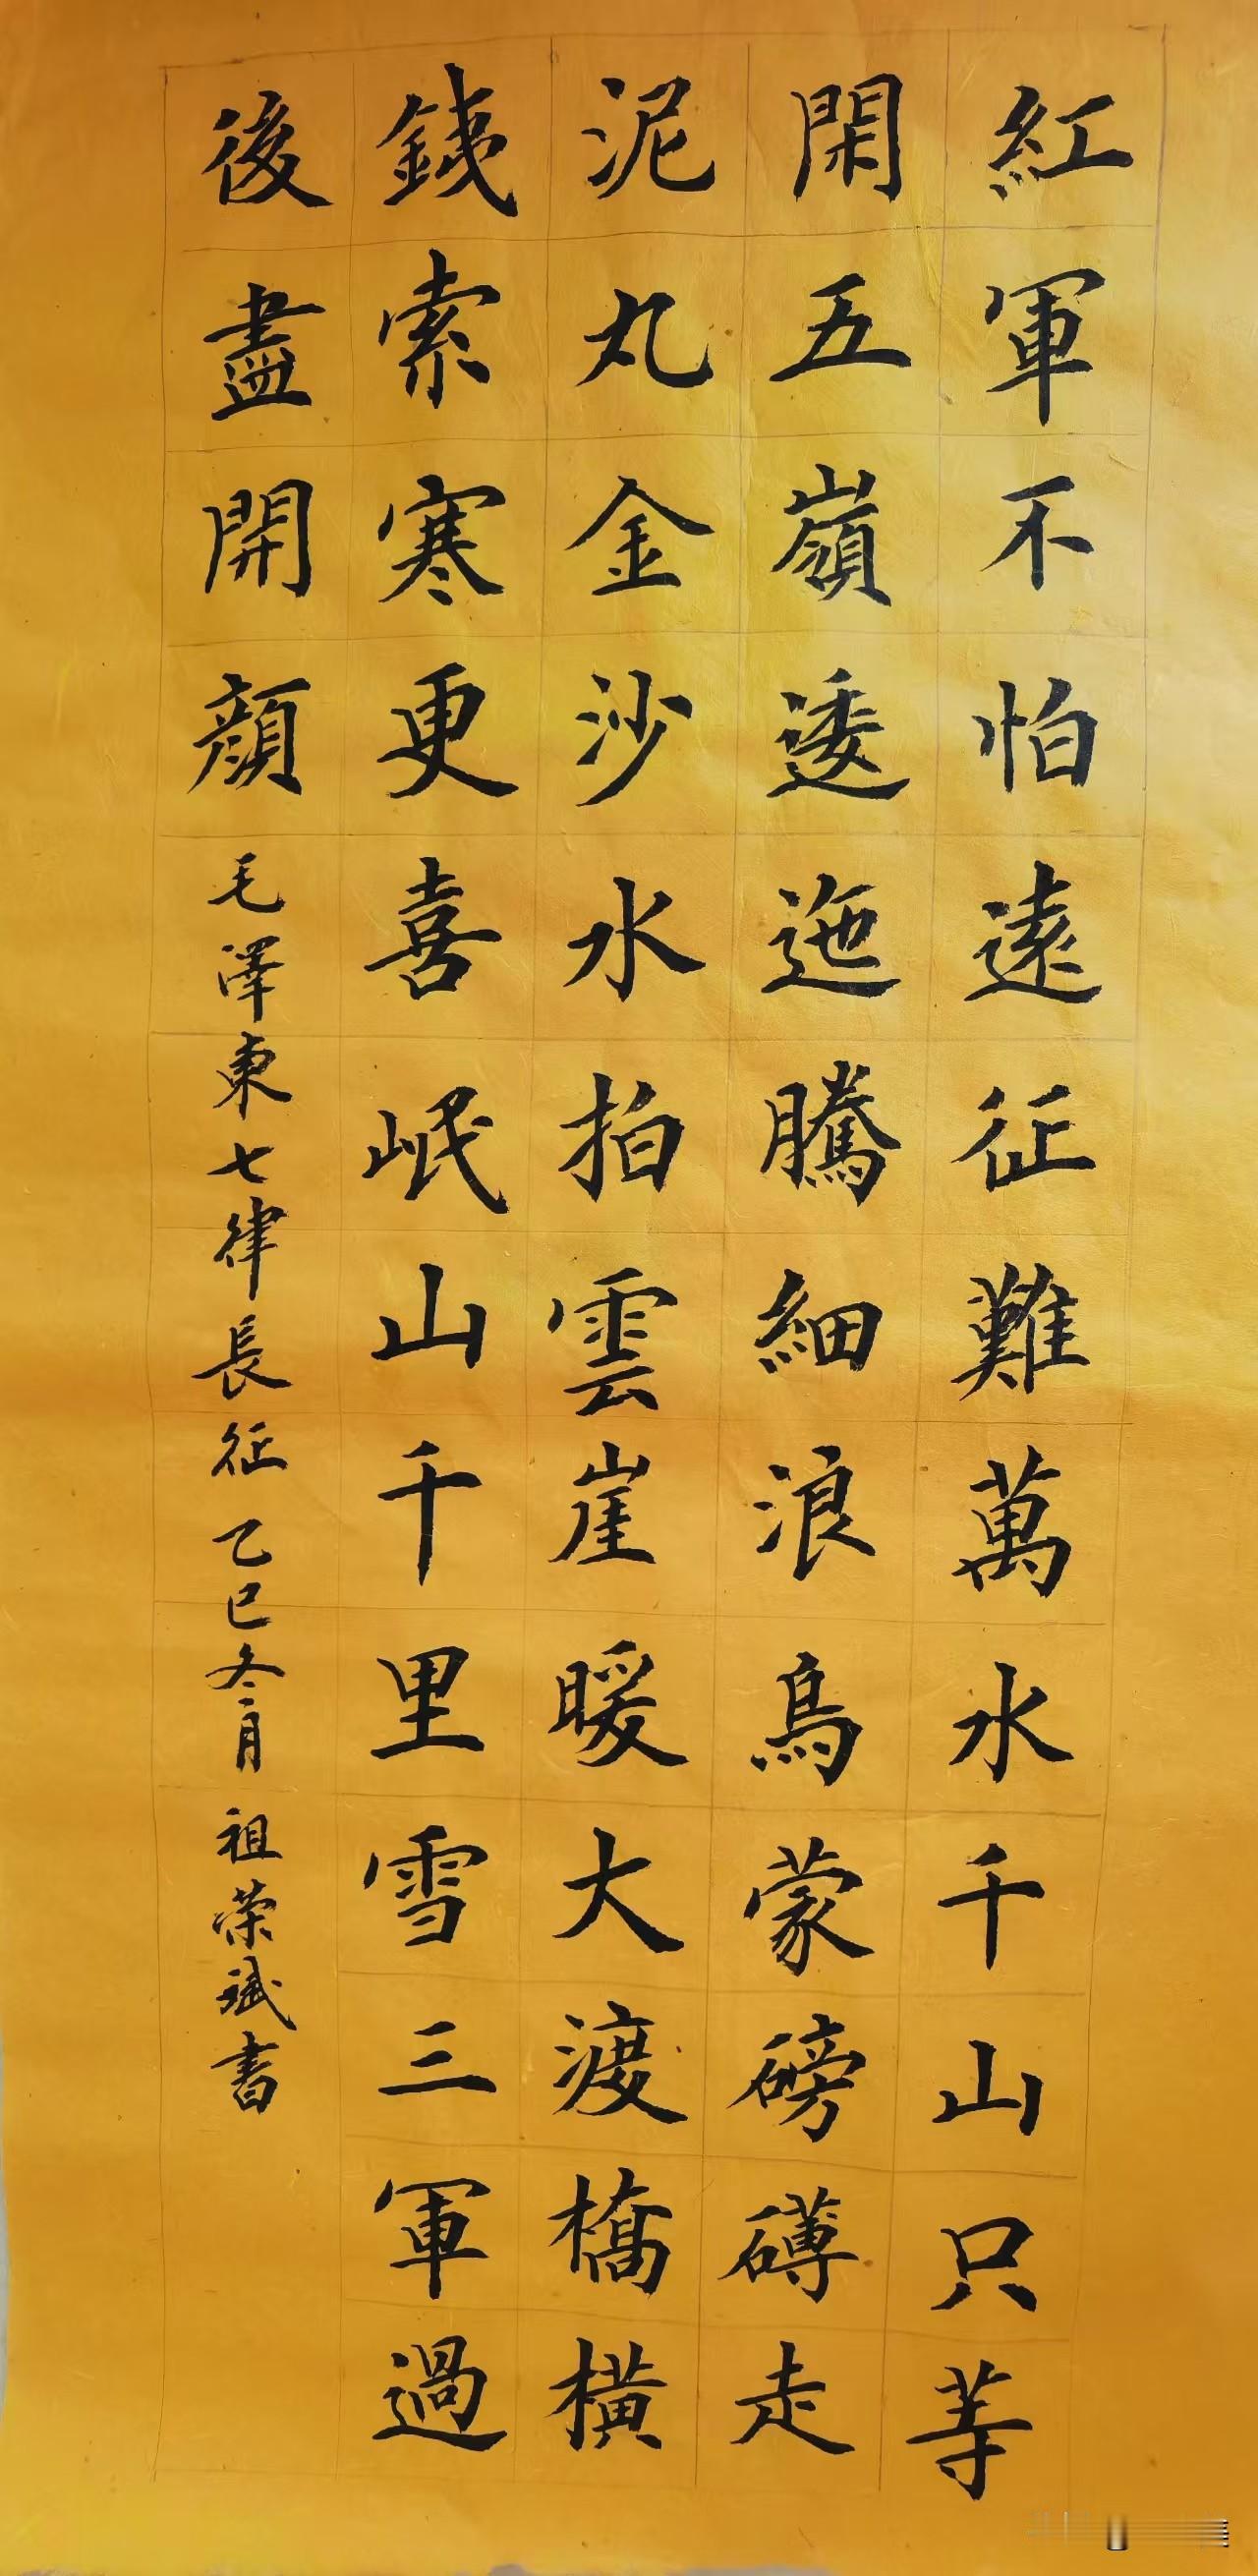 紅軍不怕遠征難萬水千山只等
閑五嶺逶迤騰細浪烏蒙磅礴走
泥丸金沙水拍雲崖暖大渡橋橫
鐵索寒更喜岷山千里雪三軍過
後盡開顏 毛澤東七律長征 乙巳冬月 祖荣斌書